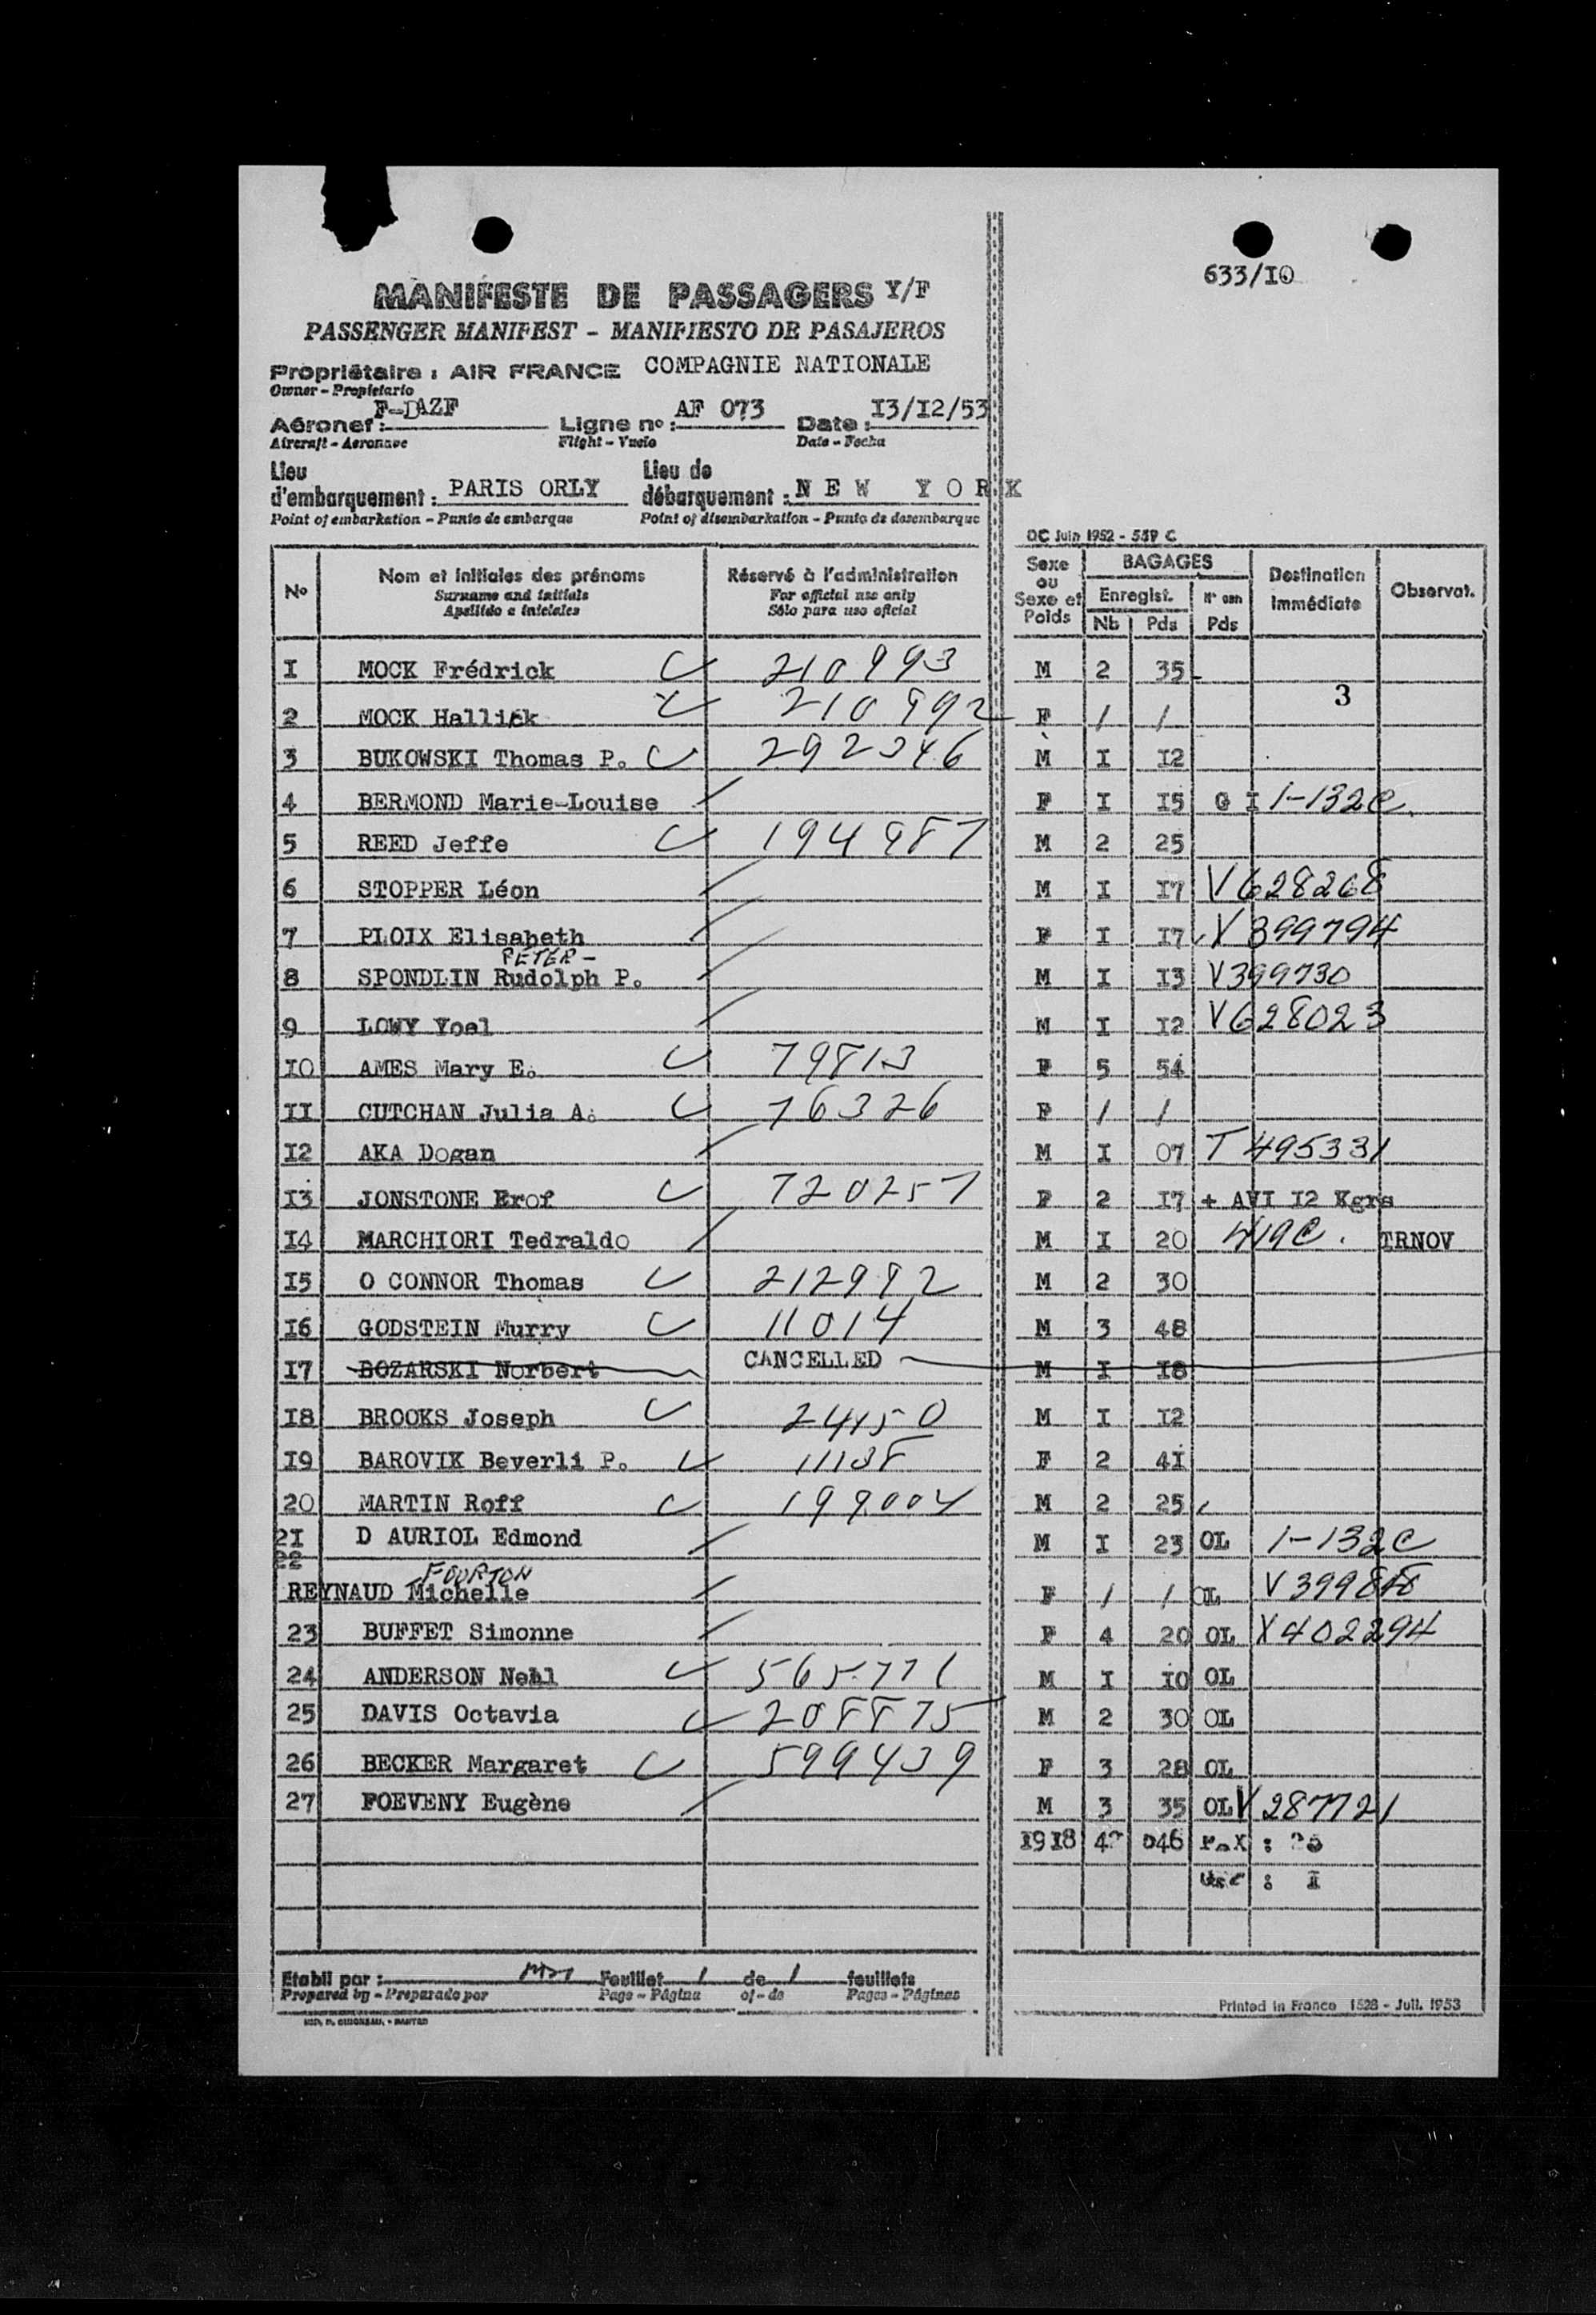 633/I0
MANIFESTE DE PASSAGERS Y/F
PASSENGER MANIFEST - MANIFIESTO DE PASAJEROS
Propriétaire : AIR FRANCE COMPAGNIE NATIONALE
Owner - Propietario
Aéronef : F-DAZF Ligne no : AF 073 Date : I3/I2/53
Aircraft - Aeronave Flight - Vuelo Date - Fecha
Lieu d'embarquement : PARIS ORLY Lieu de débarquement : NEW YORK
Point of embarkation - Punto de embarque Point of disembarkation - Punto de desembarque
OC Juin 1952 - 559 C
No Nom et initiales des prénoms Réservé à l'administration Sexe ou Sexe et Poids BAGAGES Destination immédiate Observat.
Surname and initials For official use only Enregist. N° can
Apellido e iniciales Sólo para uso oficial Nb Pds Pds
I MOCK Frédrick 210993 M 2 35
3
2 MOCK Hallick 210992 F / /
3 BUKOWSKI Thomas P. 292346 M I I2
4 BERMOND Marie-Louise F I I5 G I 1-132C
5 REED Jeffe 194987 M 2 25
6 STOPPER Léon M I I7 V628268
7 PLOIX Elisabeth F I I7 V399794
PETER-
8 SPONDLIN Rudolph P. M I I3 V399730
9 LOWY Yoel M I I2 V628023
I0 AMES Mary E. 79813 F 5 54
II CUTCHAN Julia A. 76326 F / /
I2 AKA Dogan M I 07 T 495331
I3 JONSTONE Erof 720257 F 2 I7 + AVI I2 Kgrs
I4 MARCHIORI Tedraldo M I 20 419C. TRNOV
I5 O CONNOR Thomas 212982 M 2 30
I6 GODSTEIN Murry 11014 M 3 48
I7 BOZARSKI Norbert CANCELLED M I I8
I8 BROOKS Joseph 24150 M I I2
I9 BAROVIK Beverli P. 11138 F 2 4I
20 MARTIN Roff 199004 M 2 25
2I D AURIOL Edmond M I 23 OL 1-132C
22
FOURTON
REYNAUD Michelle F / / OL V3998
23 BUFFET Simonne F 4 20 OL V402294
24 ANDERSON Nehl 565771 M I I0 OL
25 DAVIS Octavia 208875 M 2 30 OL
26 BECKER Margaret 599439 F 3 28 OL
27 FOEVENY Eugène M 3 35 OL V287721
I9 I8 46 PAX :
: I
Etabli par : Feuillet 1 de 1 feuillets
Prepared by - Preparado por Page - Página of - de Pages - Páginas
Printed in France 1528 - Juil. 1953